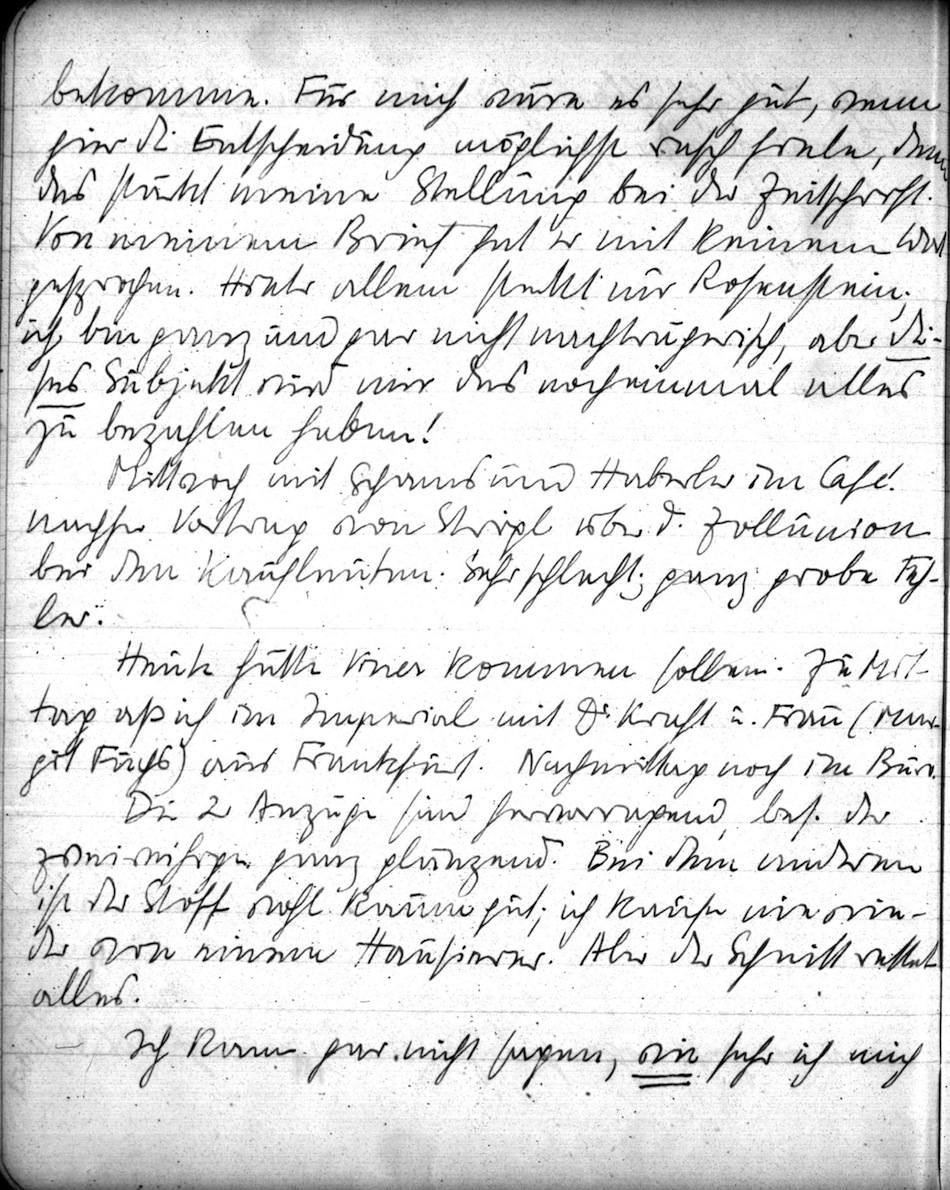 bekomme. Für mich wäre es sehr gut, wenn
hier die Entscheidung möglichst rasch fiele, denn
das stärkt meine Stellung bei der Zeitschrift.
Von meinem Brief hat er mit keinem Wort
gesprochen. Hinter allem steckt nur Rosenstein;
ich bin ganz und gar nicht nachträgerisch, aber die-
ses Subjekt wird mir das nocheinmal alles
zu bezahlen haben!
Mittwoch mit Schams und Haberler im Café.
nachher Vortrag von Strigl über d. Zollunion
bei den Kaufleuten. Sehr schlecht; ganz grobe Feh-
ler.
Heute hätte Viner kommen sollen. Zu Mit-
tag aß ich im Imperial mit Dr Kraft u. Frau (Mar-
git Fuchs) aus Frankfurt. Nachmittag noch im Büro.
Die 2 Anzüge sind hervorragend, bes. der
zweireihige ganz glänzend. Bei dem anderen
ist der Stoff wohl kaum gut; ich kaufe nie wie-
der von einem Hausierer. Aber der Schnitt rettet
alles.
Ich kann gar nicht sagen, wie sehr ich mich